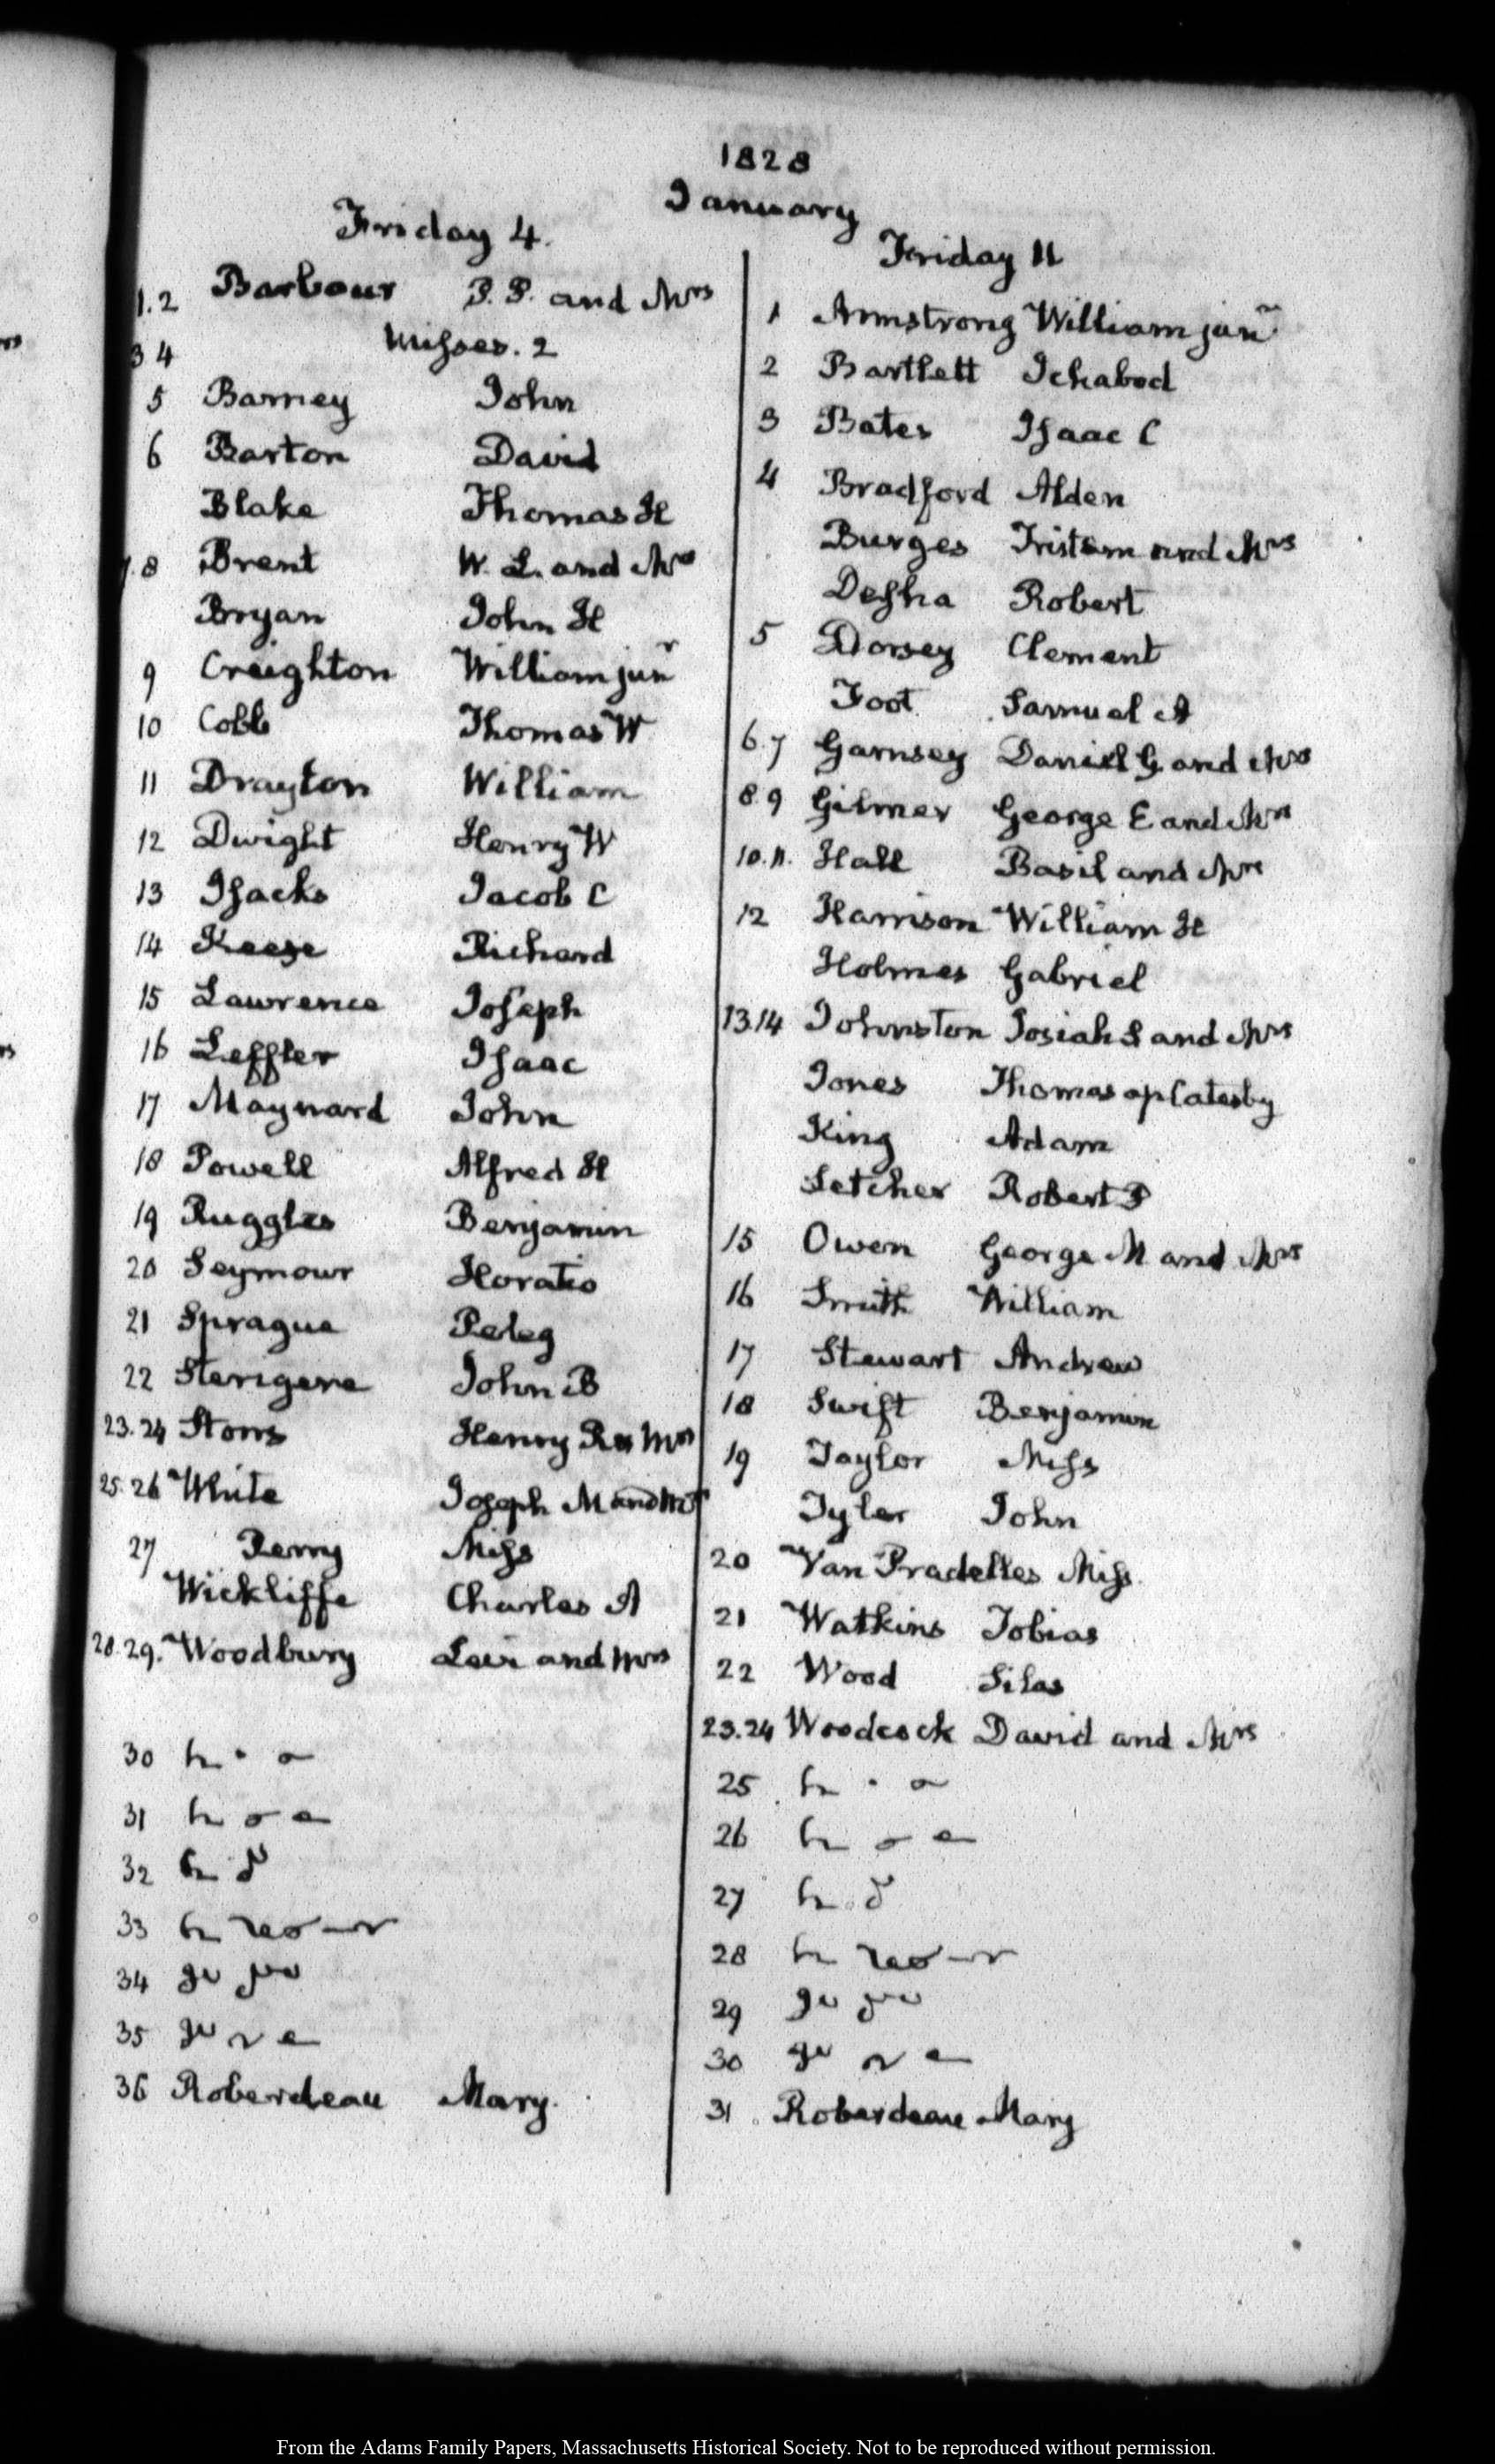 1828
January
Friday 4.
1.2 Barbour P. P. and Mrs
3 4 Misses. 2
5 Barney John
6 Barton David
Blake Thomas H
7.8 Brent W. L. and Mrs
Bryan John H
9 Creighton William junr
10 Cobb Thomas W
11 Drayton William
12 Dwight Henry W
13 Isacks Jacob C
14 Keese Richard
15 Lawrence Joseph
16 Leffler Isaac
17 Maynard John
18 Powell Alfred H
19 Ruggles Benjamin
20 Seymour Horatio
21 Sprague Peleg
22 Sterigere John B
23.24 Storrs Henry R & Mrs
25.26 White Joseph M and Mrs
27 Perry Miss
Wickliffe Charles A
28.29. Woodbury Levi and Mrs
30
31
32
33
34
35
36 Roberdeau Mary.
Friday 11
1 Armstrong William junr
2 Bartlett Ichabod
3 Bates Isaac C
4 Bradford Alden
Burges Tristam and Mrs
Desha Robert
5 Dorsey Clement
Foot Samuel A
6.7 Garnsey Daniel G. and Mrs
8.9 Gilmer George E and Mrs
10.11. Hall Basil and Mrs
12 Harrison William H
Holmes Gabriel
13.14 Johnston Josiah S and Mrs
Jones Thomas ap Catesby
King Adam
Letcher Robert P
15 Owen George M and Mrs
16 Smith William
17 Stewart Andrew
18 Swift Benjamin
19 Taylor Miss
Tyler John
20 Van Pradelles Miss.
21 Watkins Tobias
22 Wood Silas
23.24 Woodcock David and Mrs
25
26
27
28
29
30
31 Roberdeau Mary
From the Adams Family Papers, Massachusetts Historical Society. Not to be reproduced without permission.